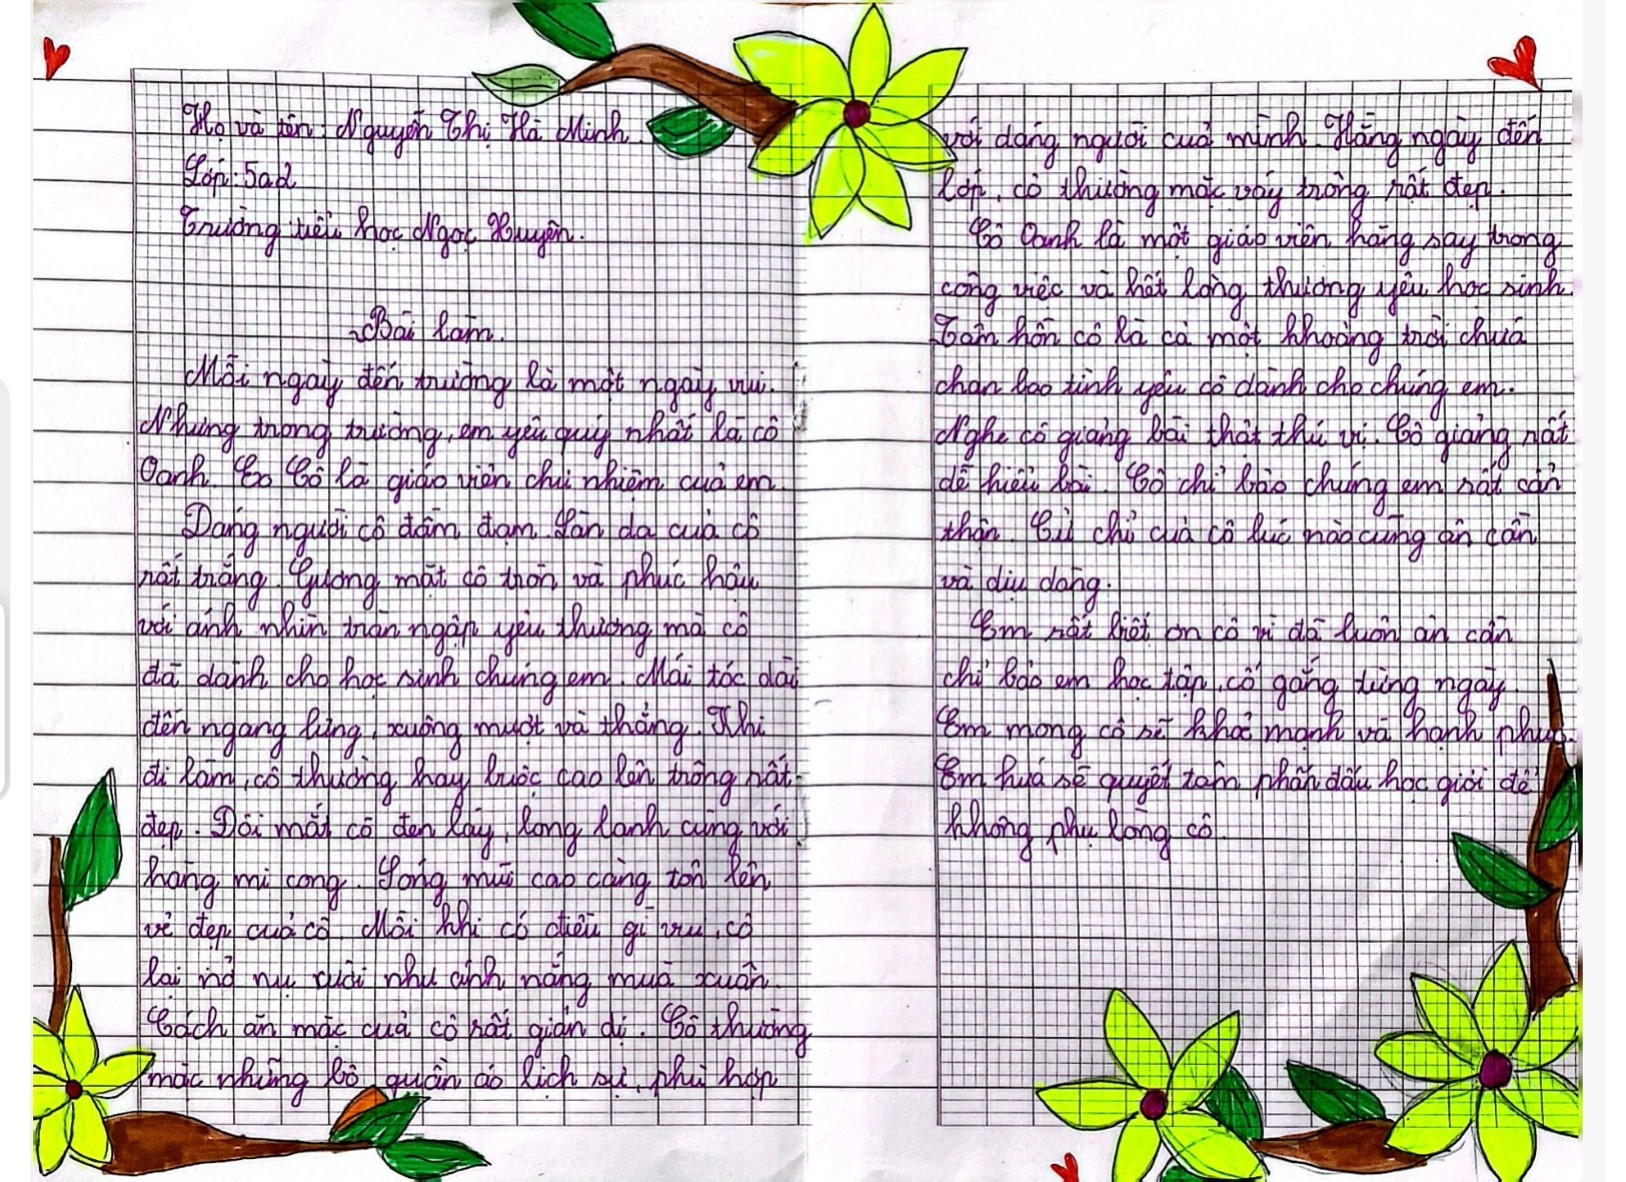 Họ và tên: Nguyễn Thị Hà Minh.
Lớp: 5a2
Trường tiểu học Ngọc Xuyên.
Bài làm.
Mỗi ngày đến trường là một ngày vui.
Nhưng trong trường, em yêu quý nhất là cô
Oanh. Co Cô là giáo viên chủ nhiệm của em.
Dáng người cô đầm đạm. Làn da của cô
rất trắng. Gương mặt cô tròn và phúc hậu
với ánh nhìn tràn ngập yêu thương mà cô
đã dành cho học sinh chúng em. Mái tóc dài
đến ngang lưng, xuông mượt và thẳng. Khi
đi làm, cô thường hay buộc cao lên trông rất
đẹp. Đôi mắt cô đen láy, long lanh cùng với
hàng mi cong. Sống mũi cao càng tôn lên
vẻ đẹp của cô. Mỗi khi có điều gì vui, cô
lại nở nụ cười như ánh nắng mùa xuân.
Cách ăn mặc của cô rất giản dị. Cô thường
mặc những bộ quần áo lịch sự, phù hợp
với dáng người của mình. Hằng ngày đến
lớp, cô thường mặc váy trông rất đẹp.
Cô Oanh là một giáo viên hăng say trong
công việc và hết lòng thương yêu học sinh.
Tâm hồn cô là cả một khoảng trời chứa
chan bao tình yêu cô dành cho chúng em.
Nghe cô giảng bài thật thú vị. Cô giảng rất
dễ hiểu bài. Cô chỉ bảo chúng em rất cẩn
thận. Cử chỉ của cô lúc nào cũng ân cần
và dịu dàng.
Em rất biết ơn cô vì đã luôn ân cần
chỉ bảo em học tập, cố gắng từng ngày.
Em mong cô sẽ khoẻ mạnh và hạnh phúc.
Em hứa sẽ quyết tâm phấn đấu học giỏi để
không phụ lòng cô.